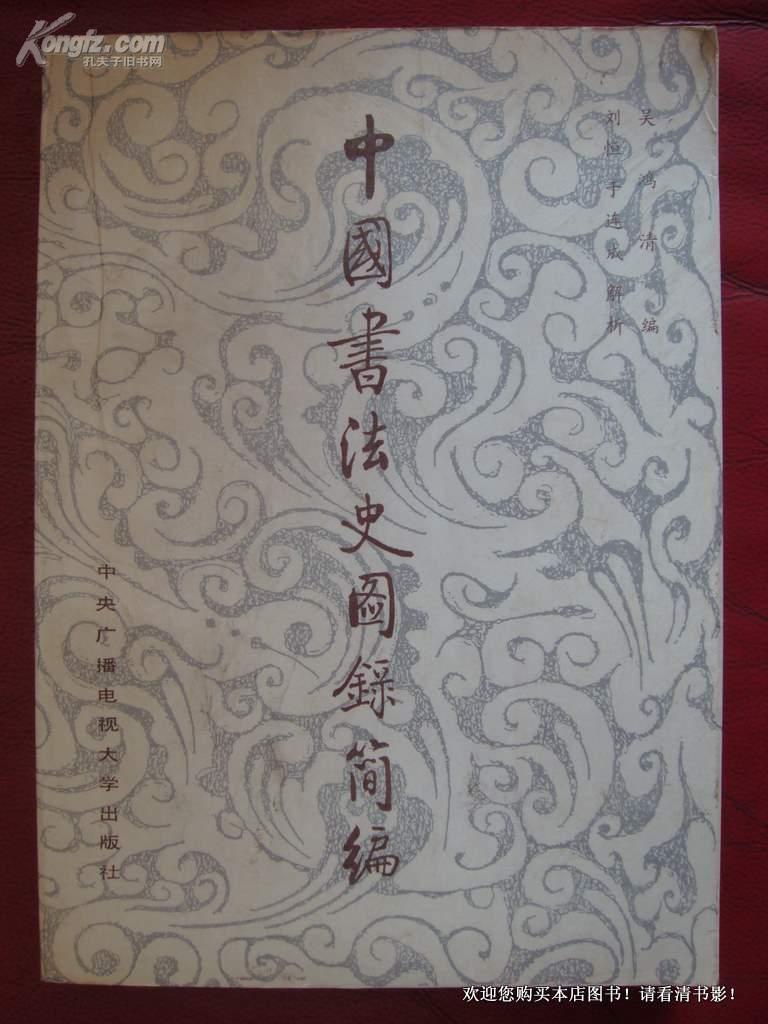 Kongfz.com
孔夫子旧书网
吴鸿清编
刘恒于连成解析
中國書法史图録简编
中央广播电视大学出版社
欢迎您购买本店图书！请看清书影！